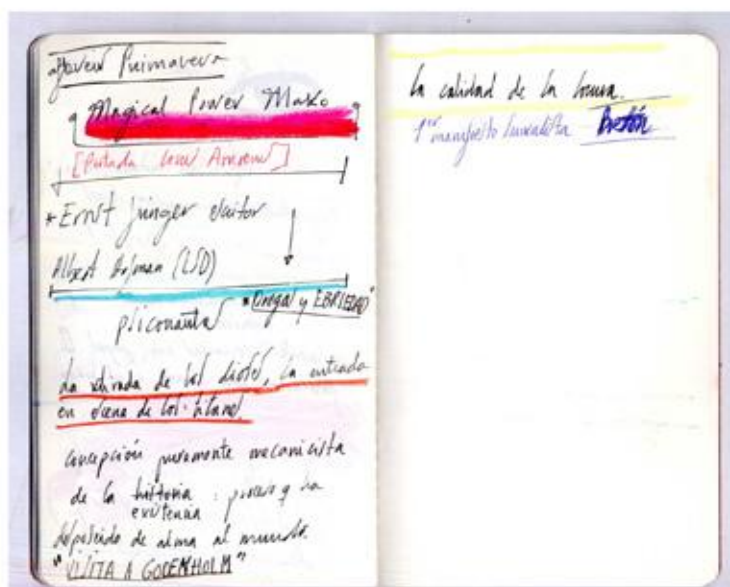 Joven Primavera
Magical Power Mako
[Portada
* Ernst Jünger escritor
Albert Hofman (LSD)
"Drogas y EBRIEDAD"
psiconautas
La retirada de los dioses, la entrada
en escena de los titanes.
concepción puramente mecanicista
de la historia : proceso q ha
existencia
desposeído de alma al mundo.
"VISITA A GODENHOLM"
La calidad de la locura.
1er manifiesto surrealista Bretón